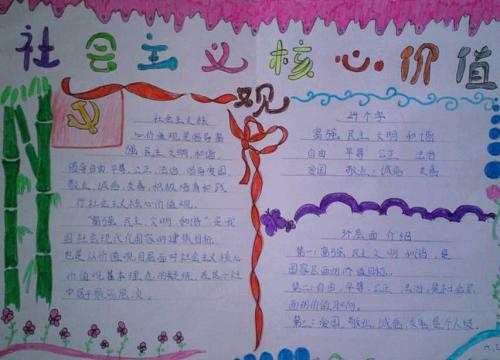 社会主义核心价值
观
社会主义核
心价值观是倡导富
强、民主、文明、和谐,
倡导自由、平等、公正、法治、倡导爱国、
敬业、诚信、友善,积极培育和践
行社会主义核心价值观。
"富强、民主、文明、和谐"是我
国社会现代化国家的建设目标,
也是从价值观目层面对社会主义核心
价值观基本理念的凝练,在
中
层次。
24个字
富强 民主 文明 和谐
自由 平等 公正 法治
爱国 敬业、诚信 友善
层面介绍
第一:富强、民主、文明、和谐,是
国家层面的价值目标。
第二:自由、平等、公正、法治,是社会层
面的价值取向。
第三:爱国、敬业、诚信、友善,是个人层